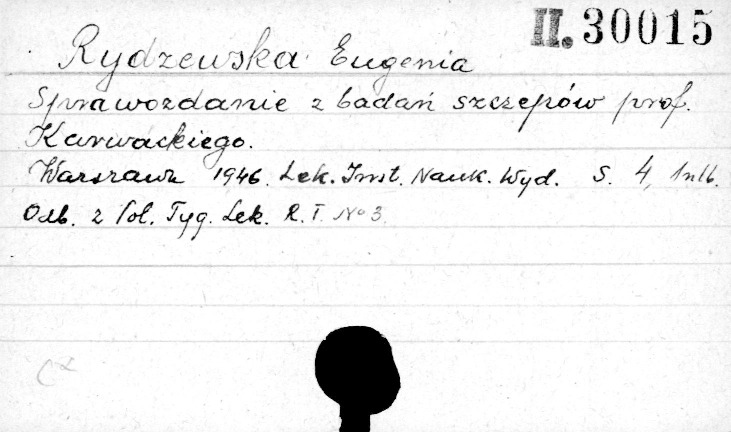 II.30015
Rydzewska Eugenia
Sprawozdanie z badań szczepów prof.
Karwackiego.
Warszawa 1946. Lek. Inst. Nauk. Wyd. S. 4, 1nlb.
Odb. z Pol. Tyg. Lek. R. I. No 3.